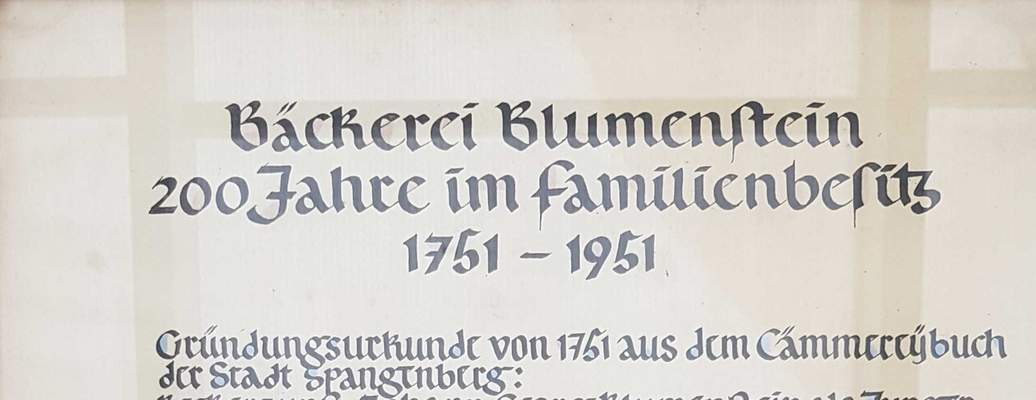 Bäckerei Blumenſtein
200 Jahre im Familienbeſitz
1751 – 1951
Gründungsurkunde von 1751 aus dem Cämmereÿbuch
der Stadt Spangenberg: